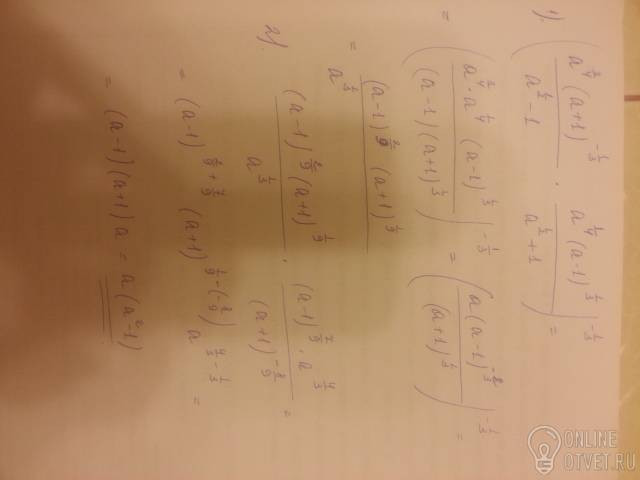 1). ( a^{3/4} (a+1)^{-1/3} / a^{1/2} - 1 · a^{1/4} (a-1)^{1/3} / a^{1/2} + 1 )^{-1/3} =
= ( a^{3/4} · a^{1/4} (a-1)^{1/3} / (a-1) (a+1)^{1/3} )^{-1/3} = ( a (a-1)^{-2/3} / (a+1)^{1/3} )^{-1/3} =
= (a-1)^{2/9} (a+1)^{1/9} / a^{1/3}
2). (a-1)^{2/9} (a+1)^{1/9} / a^{1/3} · (a-1)^{7/9} · a^{4/3} / (a+1)^{-8/9} =
= (a-1)^{2/9 + 7/9} (a+1)^{1/9 - (-8/9)} a^{4/3 - 1/3} =
= (a-1) (a+1) a = a (a²-1)
ONLINE
OTVET.RU